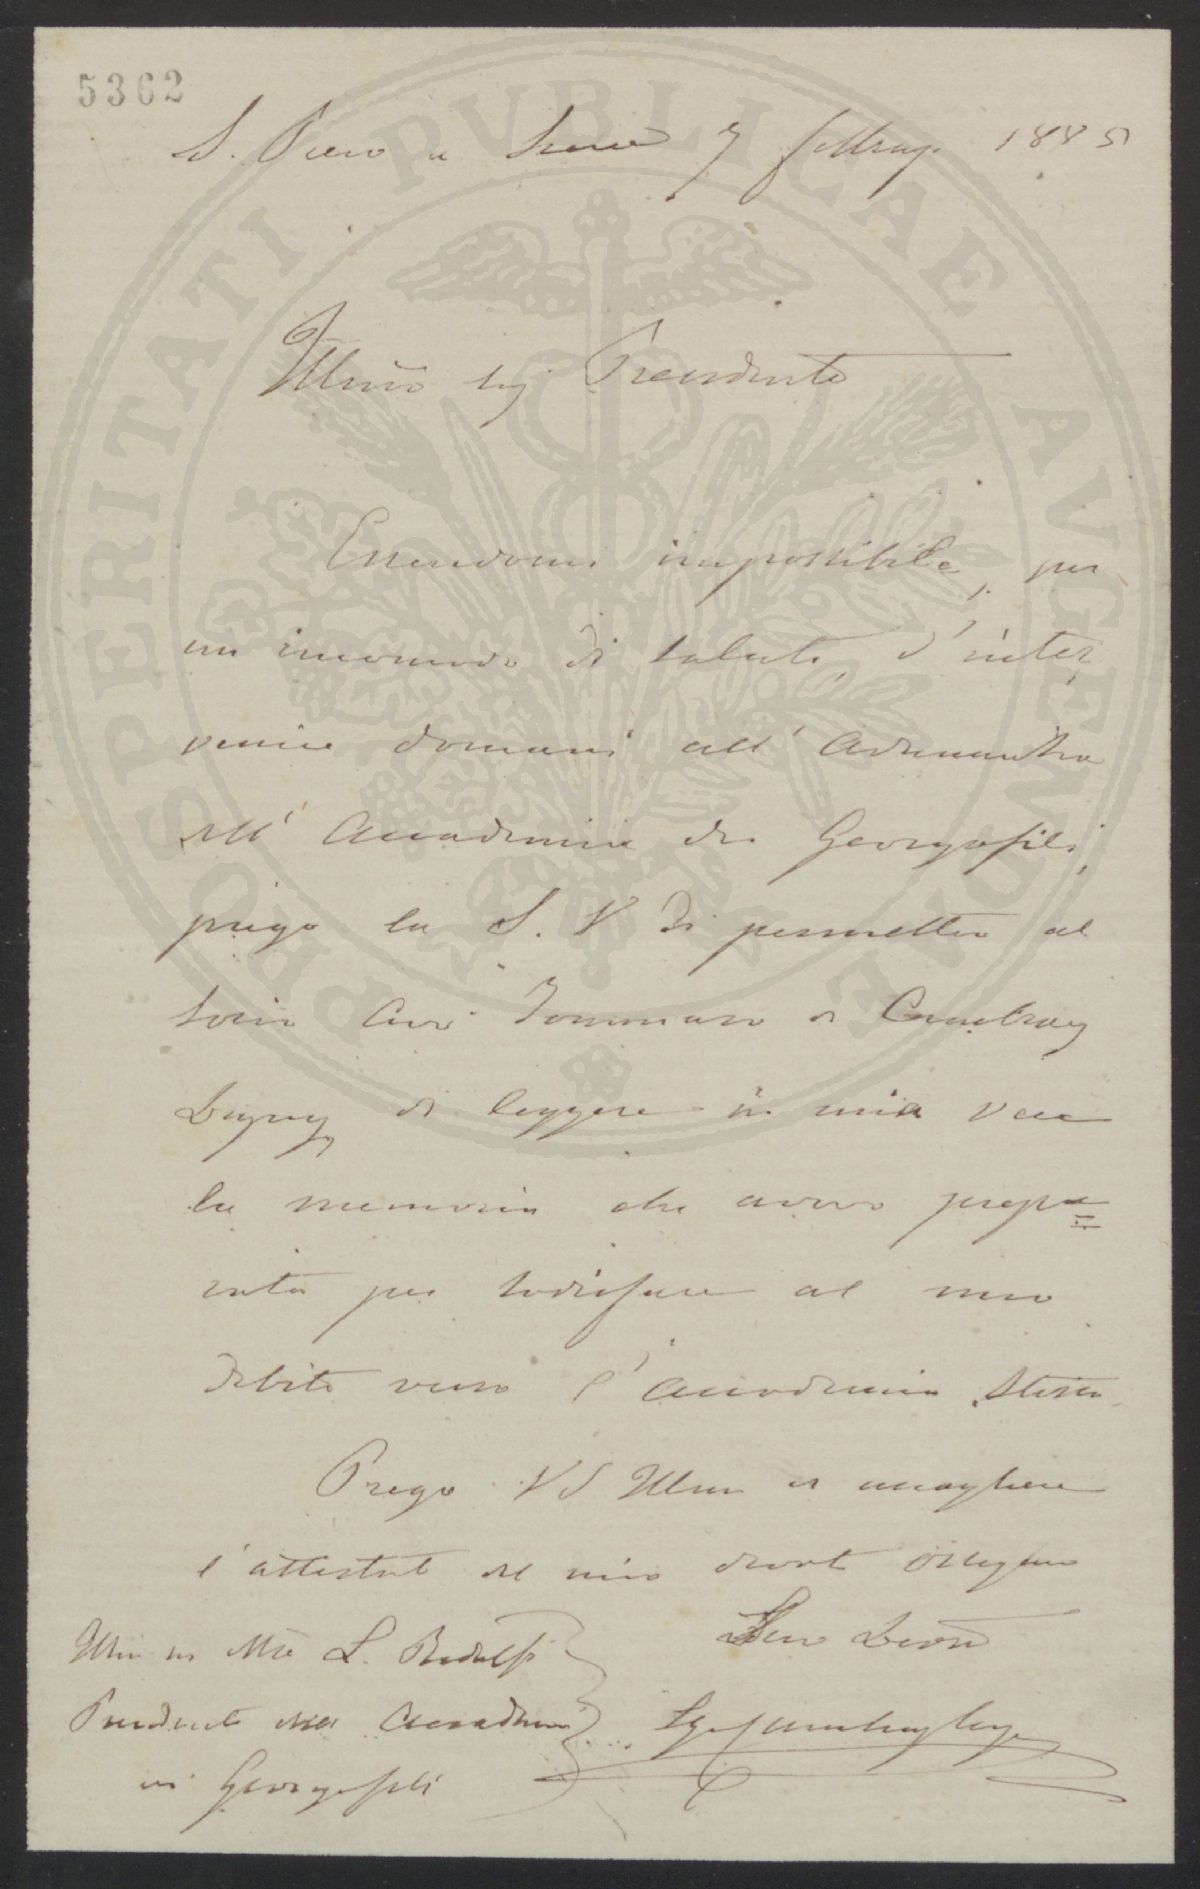 5362
S. Piero a Sieve 7 1885
Illmo Sig Presidente
Essendomi impossibile, per
un incomodo di salute, d'inter
venire domani all'Adunanza
dell'Accademia dei Georgofili,
prego la S. V di permettere al
socio Cav. Tommaso di Cambray
Digny, di leggere in mia vece
la memoria che avevo prepa=
rata per sodisfare al mio
debito verso l'Accademia stessa.
Prego V S Illma di accogliere
l'attestato del mio devoto ossequio
Suo Devmo
Cambray Digny
Illmo Sig Mse L. Ridolfi
Presidente della Accademia
dei Georgofili
PROSPERITATI PVBLICAE AVGENDAE